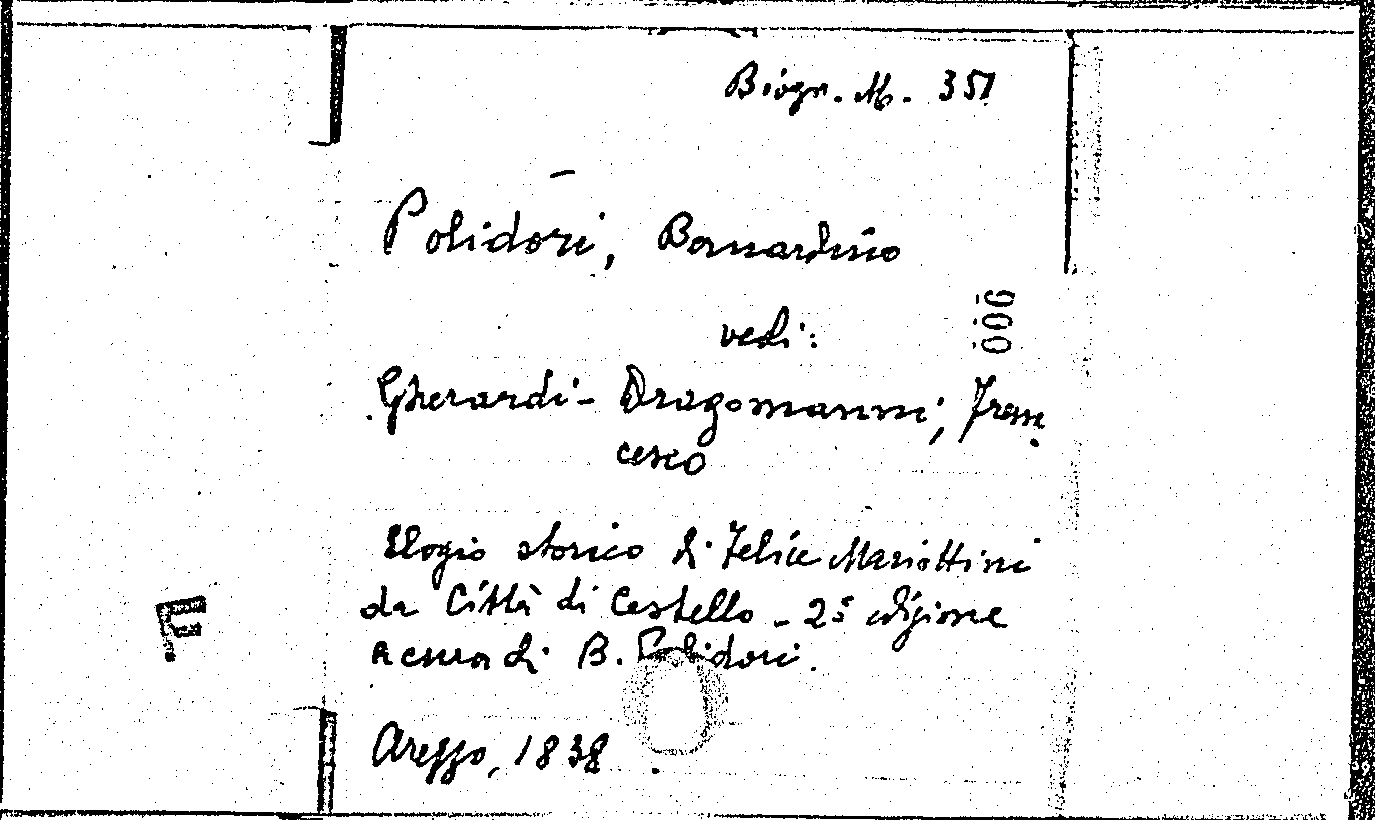 Biogr. M. 351
Polidori, Bernardino
vedi:
Gherardi-Dragomanni, Fran
cesco
Elogio storico di Felice Mariottini
da Città di Castello - 2ª edizione
a cura di B. Polidori.
Arezzo, 1838.
006
F